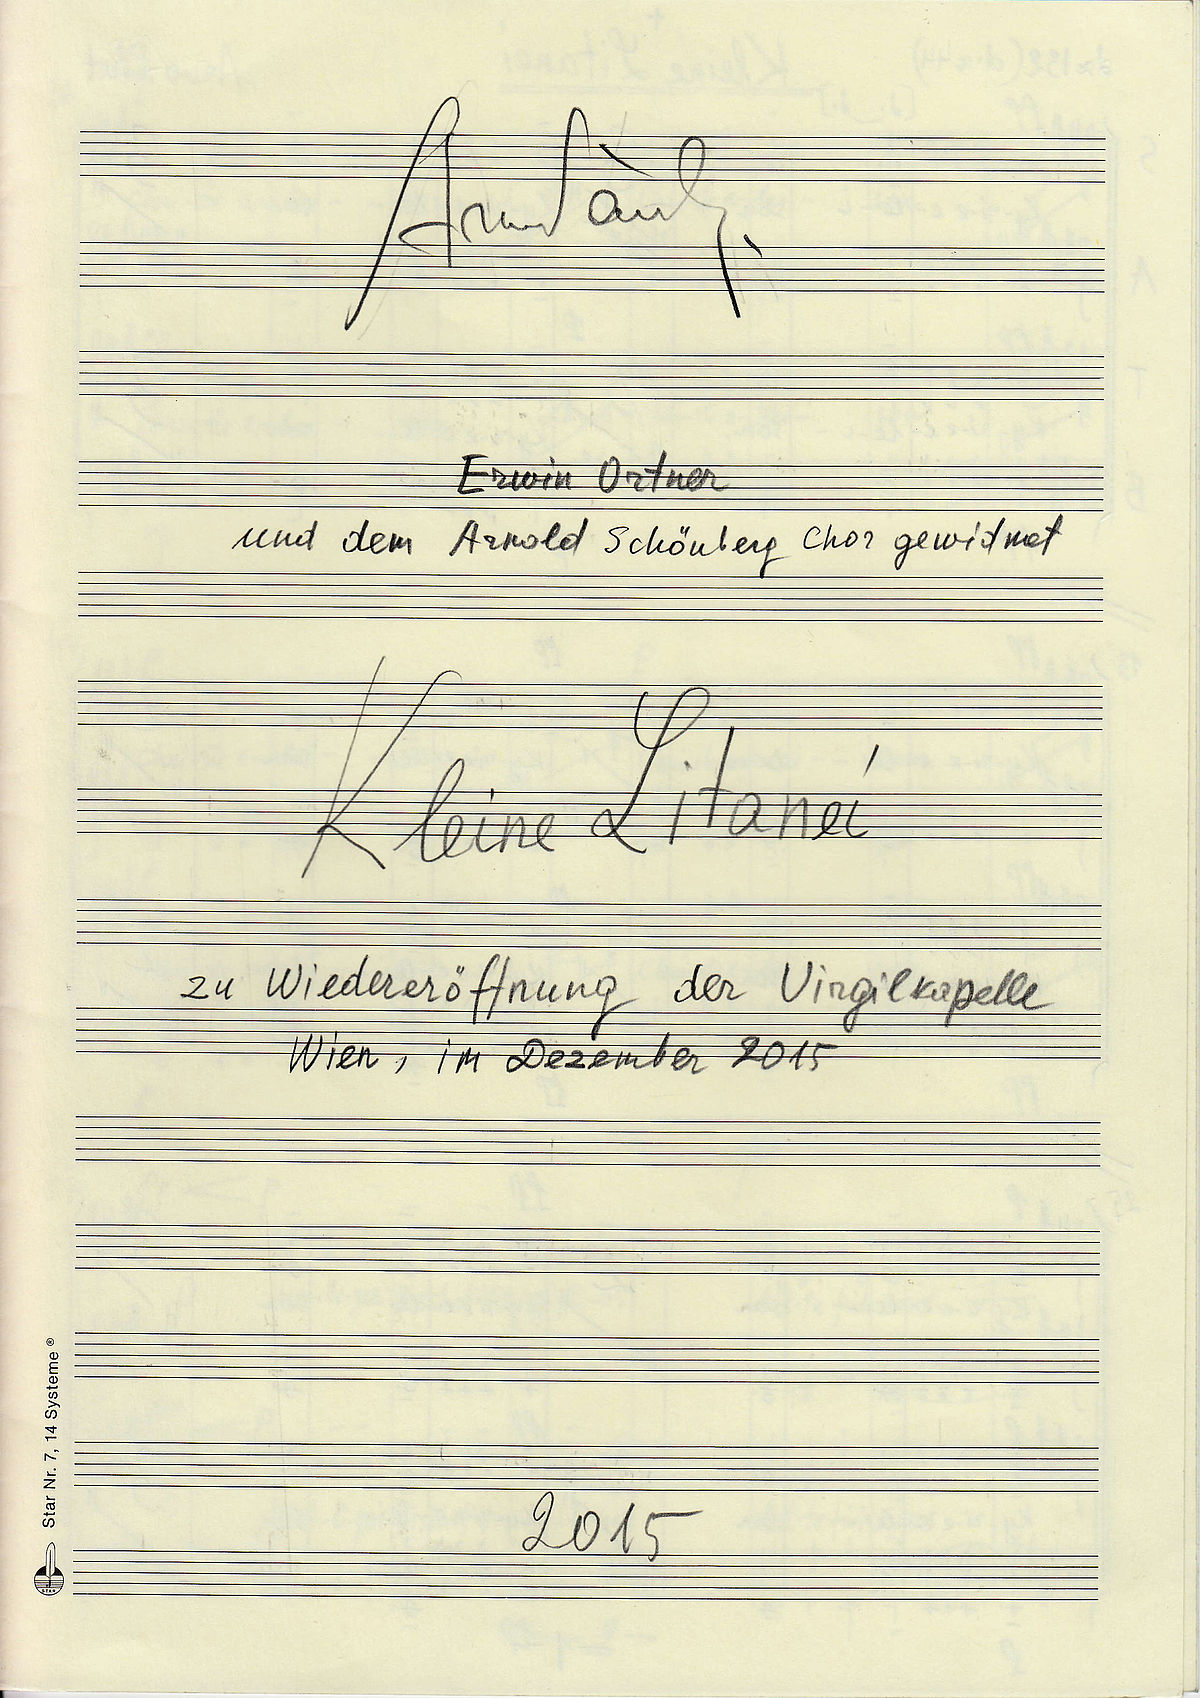 Arvo Pärt
Erwin Ortner
und dem Arnold Schönberg Chor gewidmet
Kleine Litanei
zu Wiedereröffnung der Virgilkapelle
Wien, im Dezember 2015
2015
Star Nr. 7, 14 Systeme®
STAR